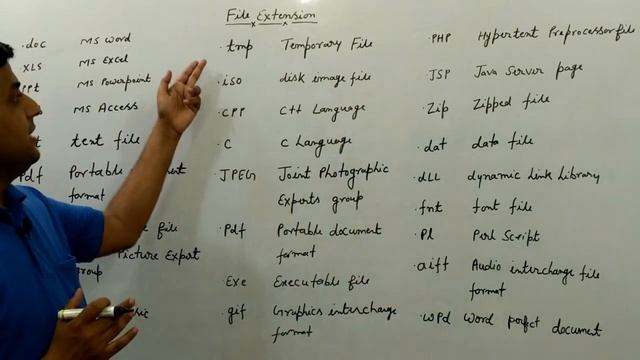 File Extension
.doc MS Word
XLS MS Excel
PPt MS Powerpoint
MS Access
text file
Pdf Portable
format
file
Picture Expert
group
.tmp Temporary File
.iso disk image file
.cpp C++ Language
.C C Language
.JPEG Joint Photographic
Experts group
.Pdf Portable document
format
.Exe Executable file
.gif Graphics interchange
format
.PHP Hypertent Preprocessor file
.JSP Java Server page
.Zip Zipped file
.dat data file
.dLL dynamic Link Library
.fnt font file
.Pl Perl Script
.aiff Audio interchange file
format
.wpd Word perfect document